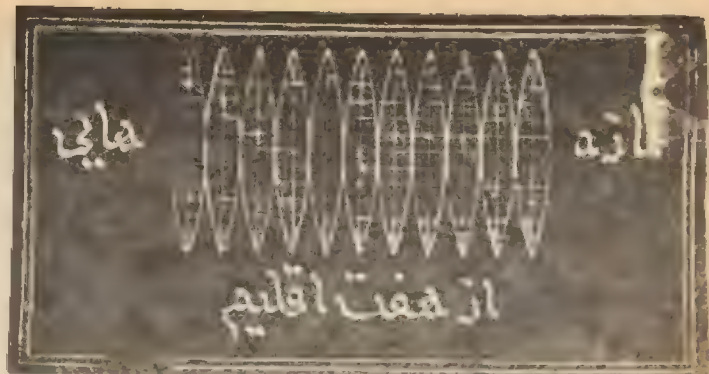 تازه هایی
از هفت اقلیم